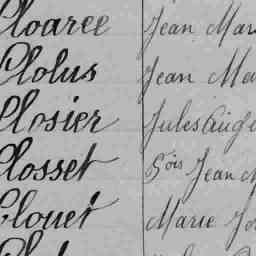 Cloarec Jean Mar
Clolus Jean Ma
Closier Jules Aug
Closset Fois Jean M
Clouet Marie Jo